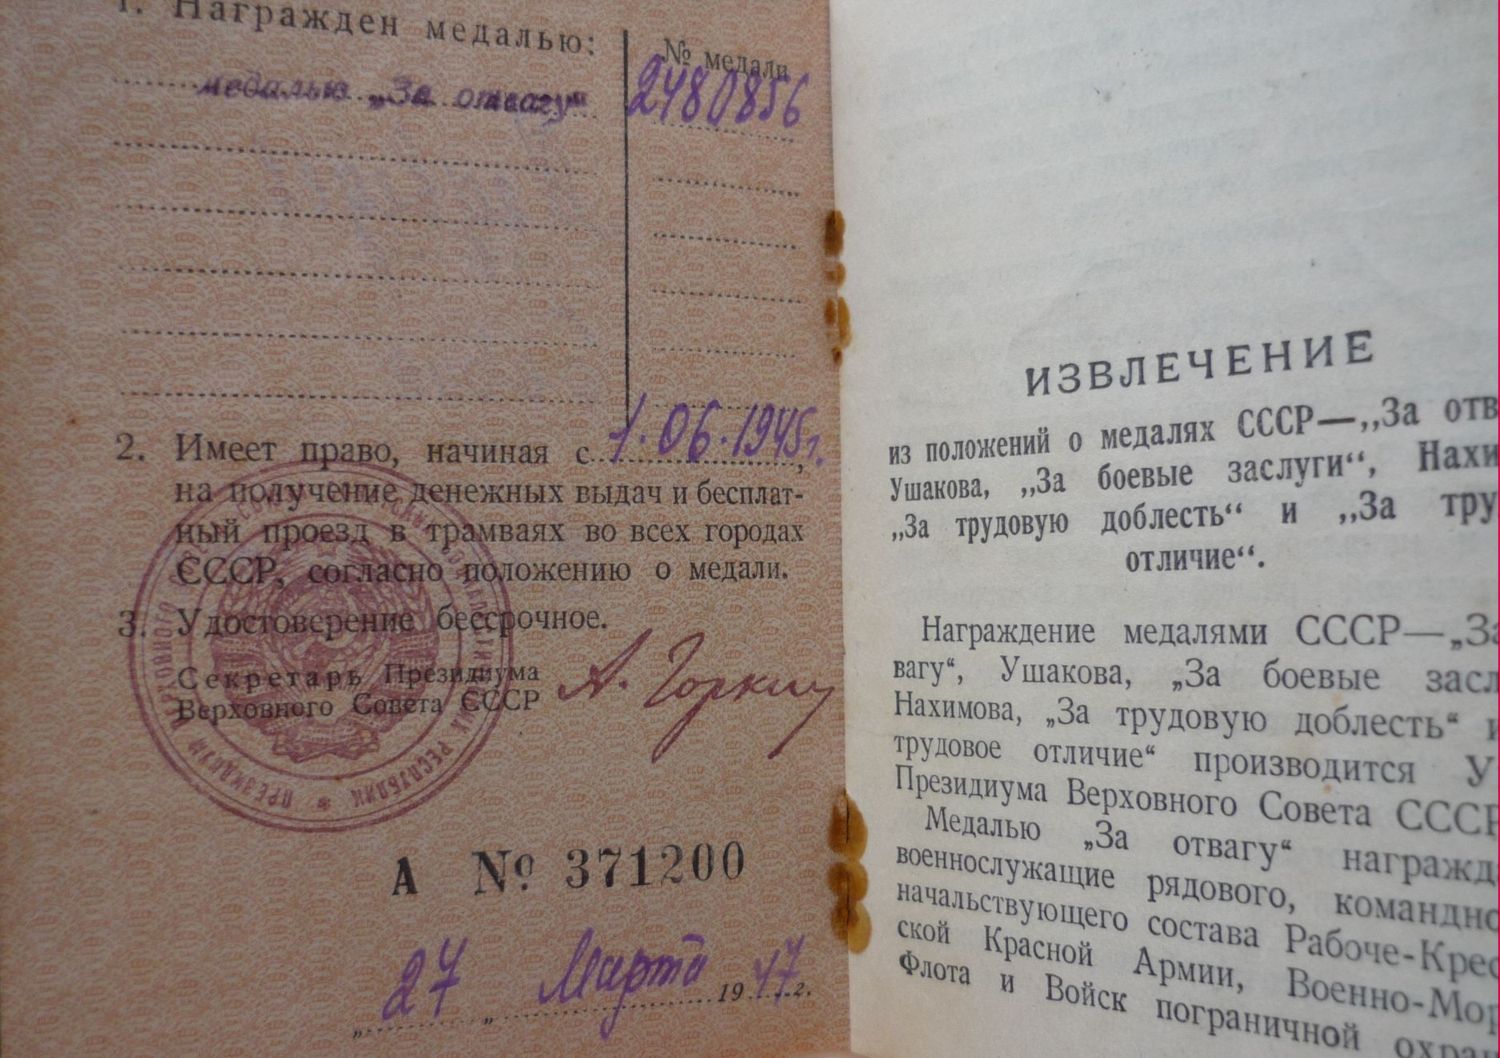 1. Награжден медалью:
№ медали
медалью „За отвагу“
2480856
2. Имеет право, начиная с 1.06.1945г.,
на получение денежных выдач и бесплат-
ный проезд в трамваях во всех городах
СССР, согласно положению о медали.
3. Удостоверение бессрочное.
Секретарь Президиума
Верховного Совета СССР
А. Горкин
А № 371200
„27 „ Марта 1947 г.
ИЗВЛЕЧЕНИЕ
из положений о медалях СССР—„За отв
Ушакова, „За боевые заслуги“, Нахи
„За трудовую доблесть“ и „За тру
отличие“.
Награждение медалями СССР—„За
вагу“, Ушакова, „За боевые засл
Нахимова, „За трудовую доблесть“ и
трудовое отличие“ производится У
Президиума Верховного Совета СССР
Медалью „За отвагу“ награжда
военнослужащие рядового, командно
начальствующего состава Рабоче-Крес
ской Красной Армии, Военно-Мор
Флота и Войск пограничной охран